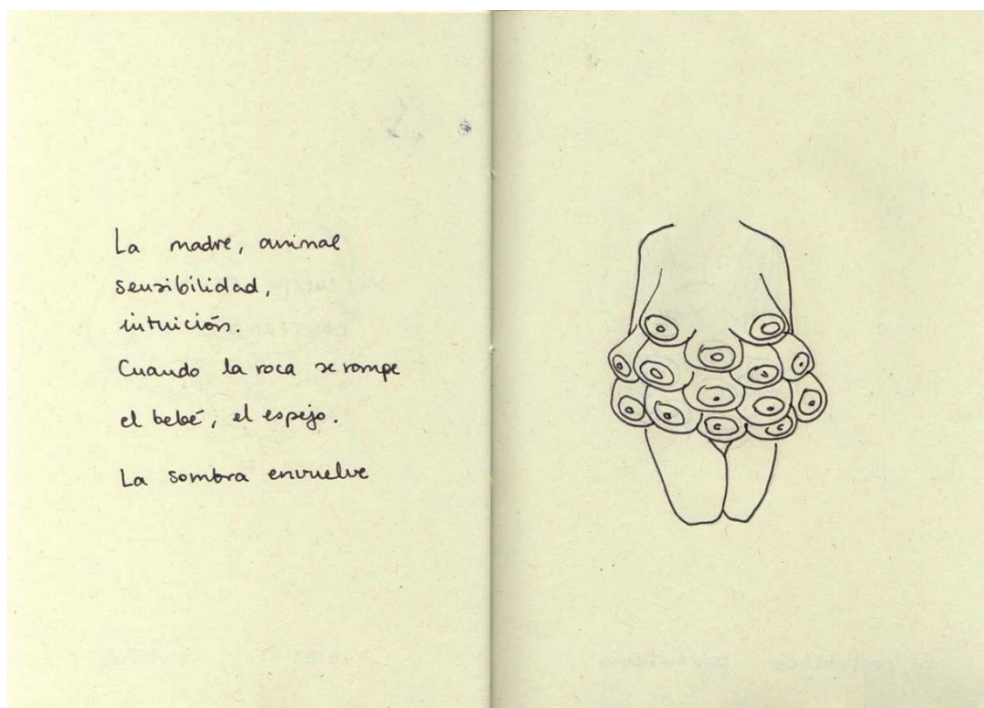 La madre, animal
sensibilidad,
intuición.
Cuando la roca se rompe
el bebé, el espejo.
La sombra envuelve